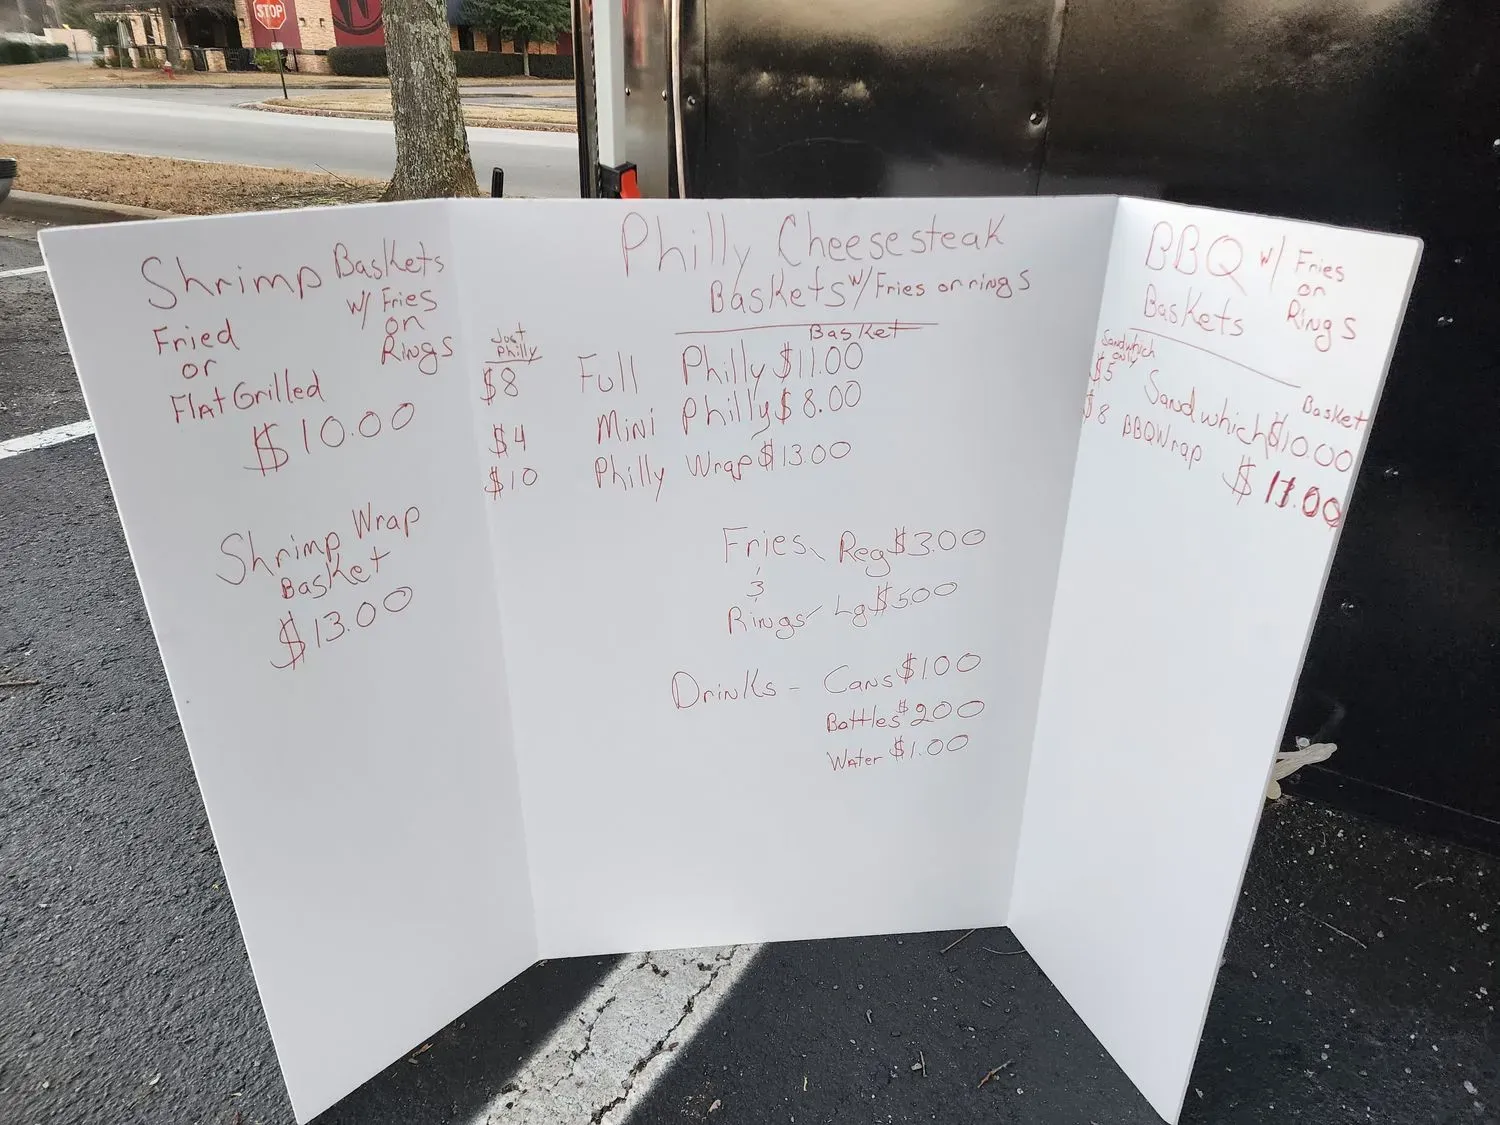 STOP
Shrimp Baskets
w/ Fries
or
Rings
Fried
or
Flat Grilled
$10.00
Shrimp Wrap
Basket
$13.00
Philly Cheesesteak
Baskets w/ Fries or rings
Just
Philly
Basket
$8 Full Philly $11.00
$4 Mini Philly $8.00
$10 Philly Wrap $13.00
Fries Reg $3.00
&
Rings Lg $5.00
Drinks - Cans $1.00
Bottles $2.00
Water $1.00
BBQ w/ Fries
or
Rings
Baskets
Sandwhich
only
Basket
$5 Sandwhich $10.00
$8 BBQ Wrap